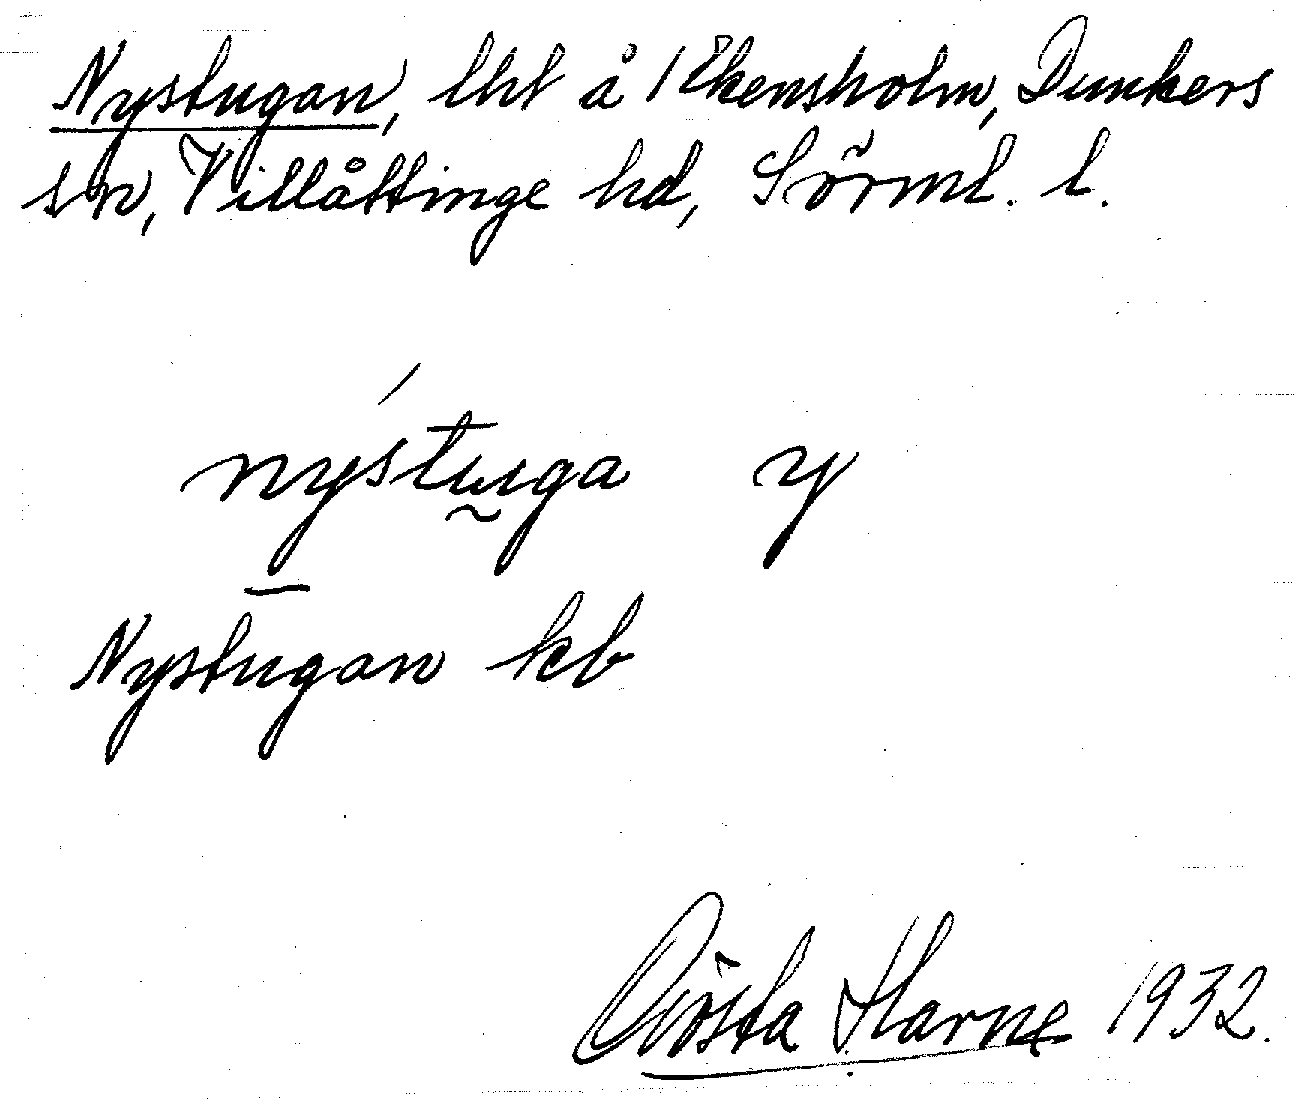 Nystugan, lht å Åkensholm, Dunkers
sn, Villåttinge hd, Sörml. l.
nýstuga y
Nystugan kb
Gösta Harne 1932.